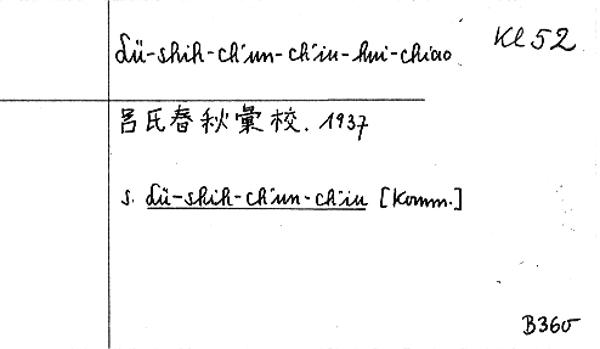 Lü-shih-ch'un-ch'iu-hui-chiao
Kl 52
呂氏春秋彙校. 1937
s. Lü-shih-ch'un-ch'iu [Komm.]
B360